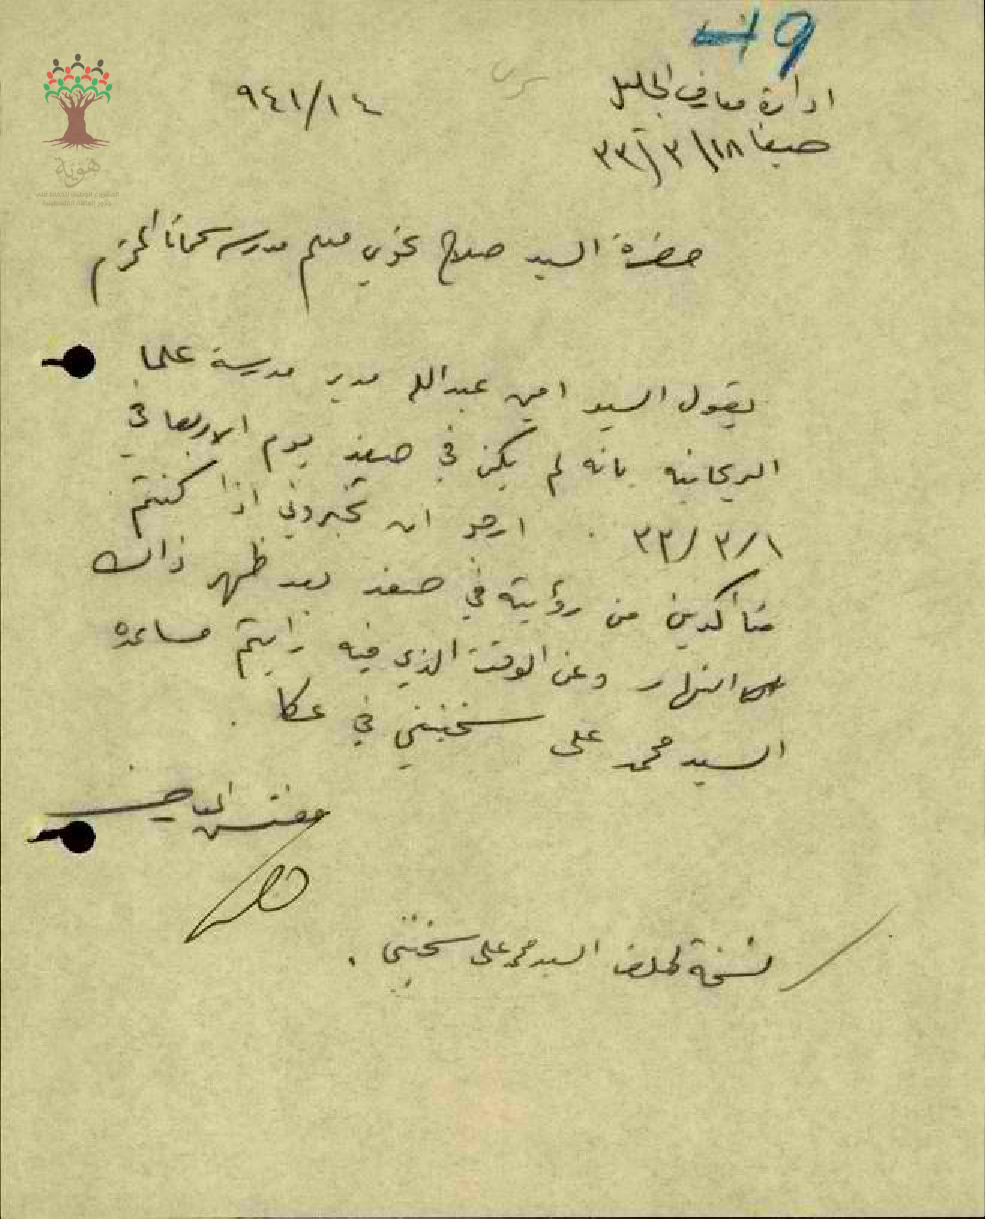 49
ادارة معارف الجليل
٩٤١/١٤
حيفا ١٨/٣/٣٣
حضرة السيد صلاح نحوي معلم مدرسة سحماتا المحترم
يقول السيد امين عبدالله مدير مدرسة علما
الريحانيه بانه لم يكن في صفد يوم الاربعا في
١/٣/٣٣ . ارجو ان تخبروني اذا كنتم
متأكدين من رؤيته في صفد بعد ظهر ذالك
النهار وعن الوقت الذي فيه رايتم مساعده
السيد محمد على سخنيني في عكا .
مفتش المعارف
نسخة لملف السيد محمد على سخنيني .
هوية